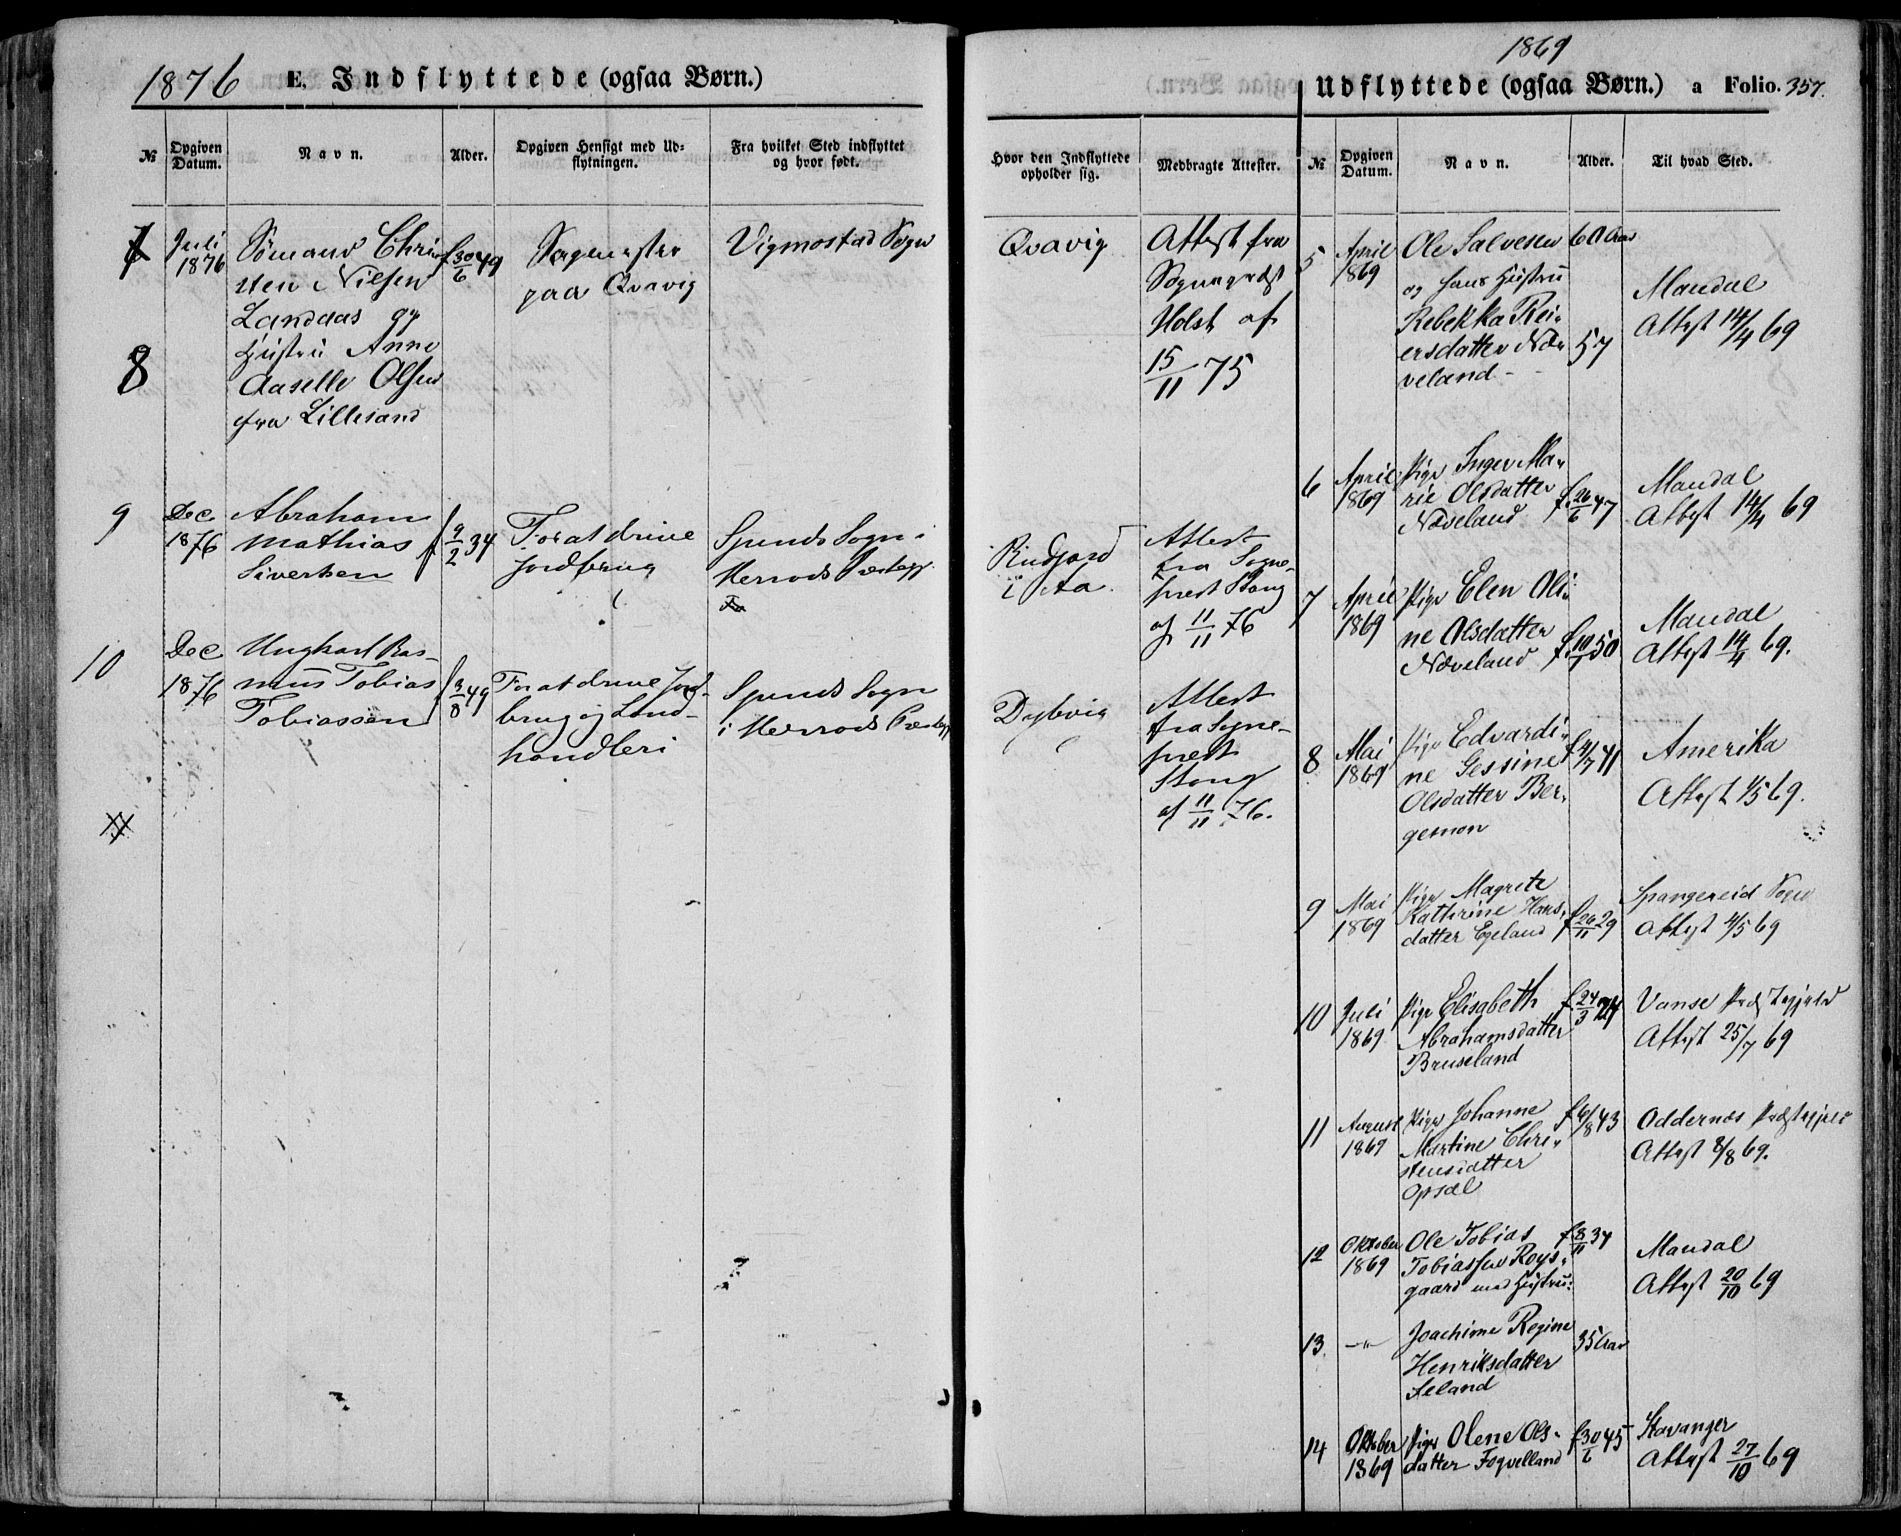 1876 E. Indflyttede (ogsaa Børn.)
№
Opgiven Datum.
Navn.
Alder.
Opgiven Hensigt med Udflytningen.
Fra hvilket Sted indflyttet og hvor født.
Hvor den Indflyttede opholder sig.
Medbragte Attester.
7
8
Juli
1876
Sømand Chri-
sten Nilsen
Landaas og
Hustru Anne
Aaselle Olsen
fra Lillesand
f 30/6 49
paa Qvavig
Vigmostad Sogn
Qvavig
Attest fra
Sognepræst
Holst af
15/11 75
9
Dec
1876
Abraham
Mathias
Sivertsen
f 9/2 34
For at drive
Jordbrug
Spinds Sogn i
Herrods Præstegj.
i Aa.
Attest
fra Sogne-
prest Stang
af 11/11 76
10
Dec
1876
Ungkarl Ras-
mus Tobias
Tobiassen
f 3/8 49
For at drive Jord-
brug og Land-
handleri
Spinds Sogn
i Herrods Præstegj
Dybvig
Attest
fra Sogne-
prest
Stang
af 11/11 76.
1869
Udflyttede (ogsaa Børn.) a Folio. 357.
№
Opgiven Datum.
Navn.
Alder.
Til hvad Sted.
5
April
1869
Ole Salvesen
og hans Hustru
Rebekka Rei-
ersdatter Næ-
veland
60 Aar
57
Mandal
Attest 14/4 69
6
April
1869
Pige Inger Ma-
rie Olsdatter
Næveland
f 26/6 47
Mandal
Attest 14/4 69
7
April
1869
Pige Elen Oli-
ne Olsdatter
Næveland
f 10/1 50
Mandal
Attest 14/4 69.
8
Mai
1869
Pige Edvardi-
ne Gessine
Olsdatter Ber-
gemon
f 4/7 41
Amerika
Attest 1/5 69.
9
Mai
1869
Pige Magrete
Kathrine Hans-
datter Egeland
f 26/11 29
Spangereid Sogn
Attest 4/5 69
10
Juli
1869
Pige Elisabeth
Abrahamsdatter
Bruseland
f 24/3
Vanse Præstegjeld
Attest 25/7 69
11
August
1869
Pige Johanne
Martine Chri-
stensdatter
Opsal
f 6/8 43
Oddernæs Præstegjeld
Attest 8/8 69.
12
Oktober
1869
Ole Tobias
Tobiassen Røys-
gaard med Hustru:
f 8/11 34
Mandal
Attest 20/10 69
13
—"—
Joachime Regine
Henriksdatter
35 Aar
14
Oktober
1869
Pige Olene Ols-
datter Foqvelland
f 30/6 45
Stavanger
Attest 27/10 69